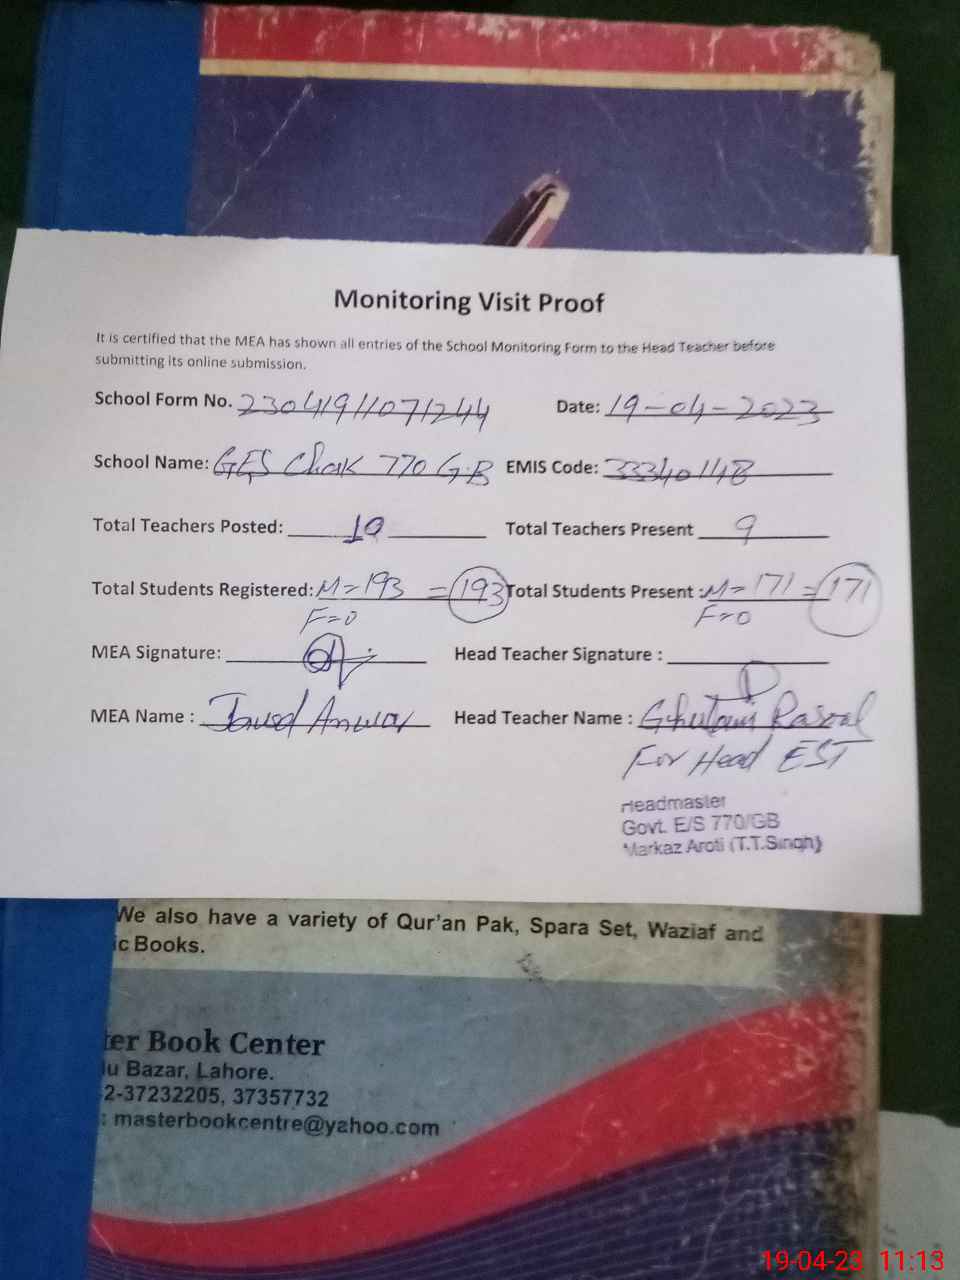 Monitoring Visit Proof
It is certified that the MEA has shown all entries of the School Monitoring Form to the Head Teacher before
submitting its online submission.
School Form No. 23041911071244 Date: 19-04-2023
School Name: GES Chak 770 G.B EMIS Code: 33340148
Total Teachers Posted: 10 Total Teachers Present 9
Total Students Registered: M=193 = 193 Total Students Present : M=171 = 171
F=0 F=0
MEA Signature: Head Teacher Signature :
MEA Name : Javed Anwar Head Teacher Name : Ghulam Rasool
For Head EST
Headmaster
Govt. E/S 770/GB
Markaz Aroti (T.T.Singh)
We also have a variety of Qur'an Pak, Spara Set, Waziaf and
ic Books.
ter Book Center
u Bazar, Lahore.
2-37232205, 37357732
: masterbookcentre@yahoo.com
19-04-23 11:13